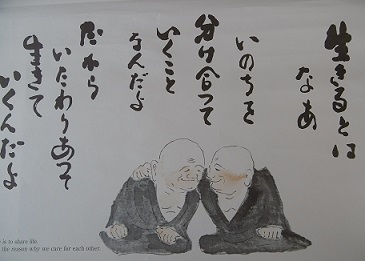 生きるとは
なあ
いのちを
分け合って
いくこと
なんだよ
だから
いたわりあって
生きて
いくんだよ
e is to share life.
the reason why we care for each other.